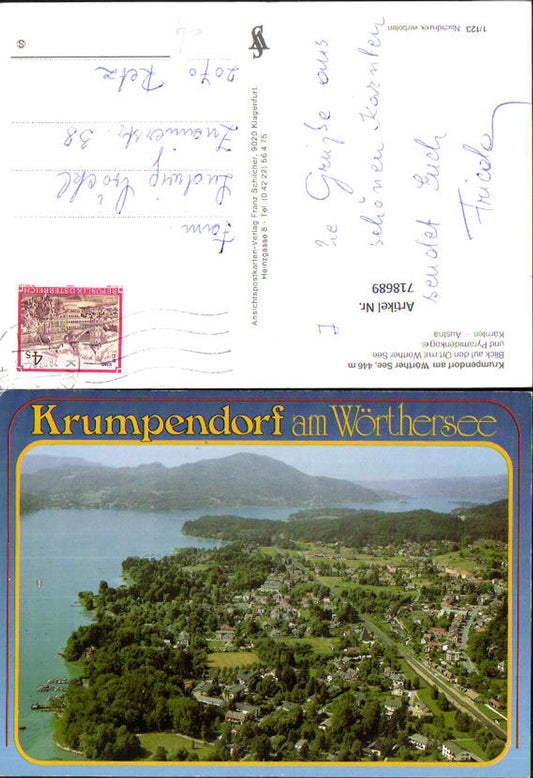 Krumpendorf am Wörther See, 446 m
Blick auf den Ort mit Wörther See
und Pyramidenkogel
Kärnten – Austria
1/123 Nachdruck verboten
Artikel Nr.
718689
Grüße aus
schönen Kärnten
sendet Euch
Ansichtspostkarten-Verlag Franz Schilcher, 9020 Klagenfurt,
Heinzgasse 8 · Tel. (0 42 22) 56 4 75
Fam.
Ludwig
Znaimerstr. 38
2070 Retz
REPUBLIK ÖSTERREICH
4 S
Krumpendorf am Wörthersee